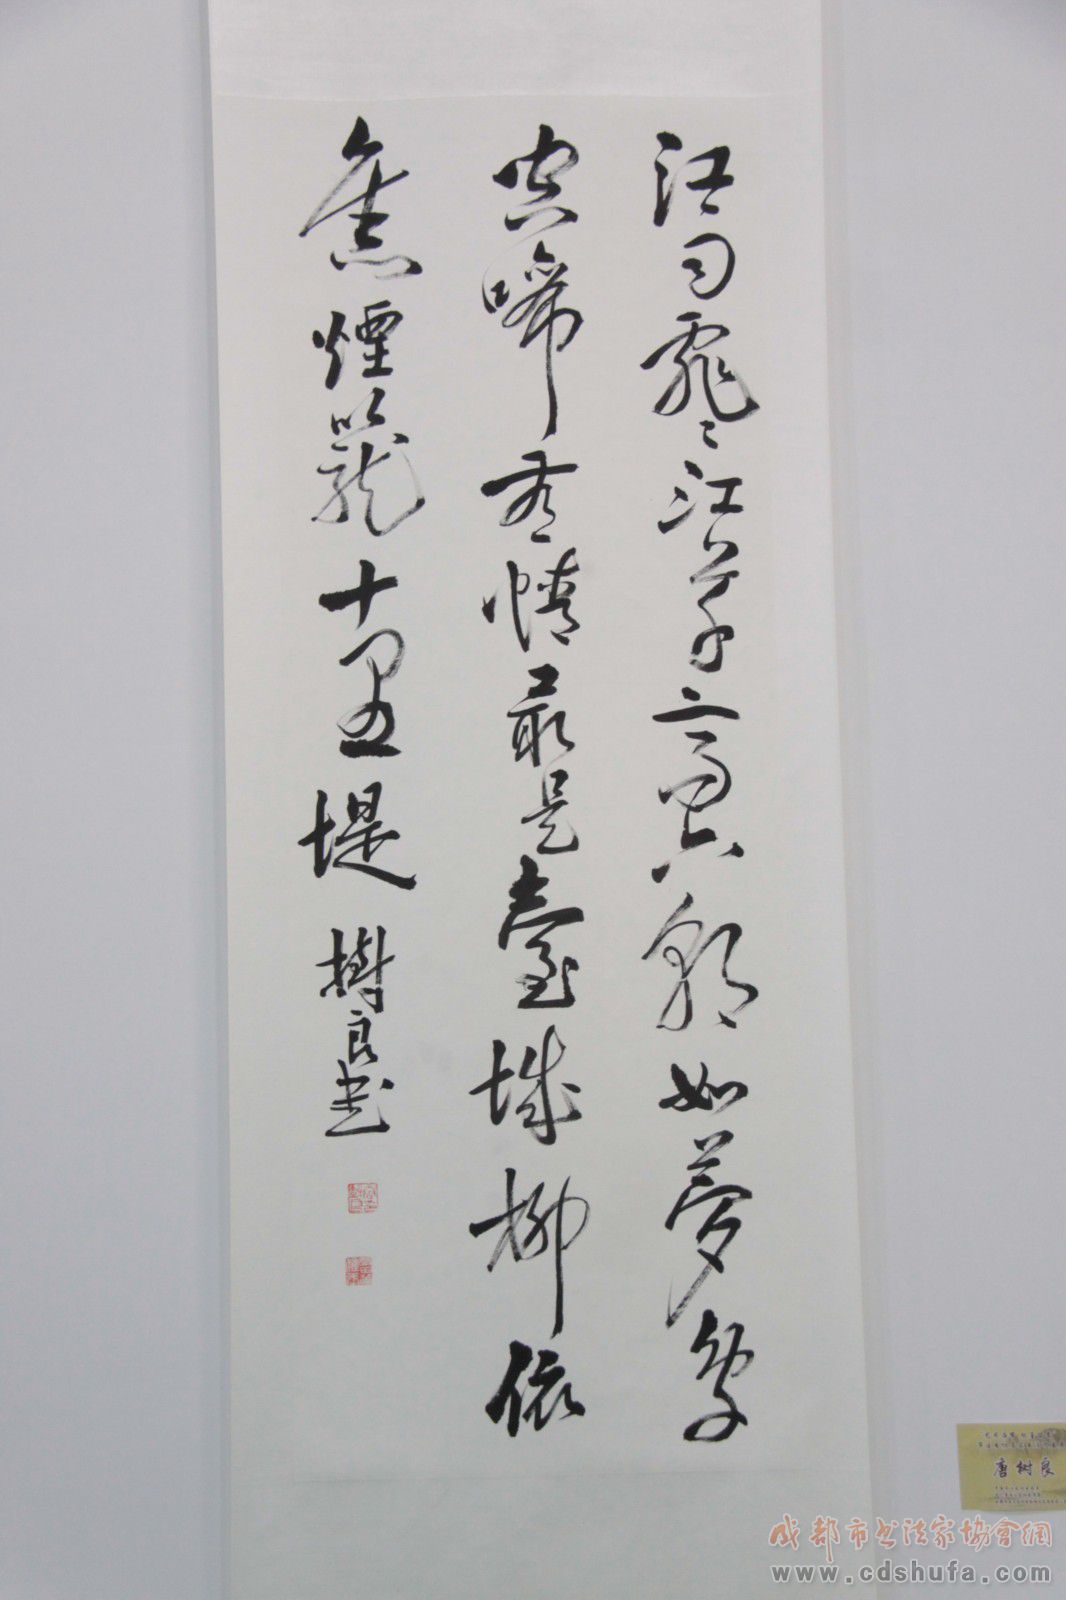 江雨霏霏江草齊六朝如夢鳥
空啼無情最是臺城柳依
舊煙籠十里堤 樹良書
唐树良
成都市书法家協會網
www.cdshufa.com